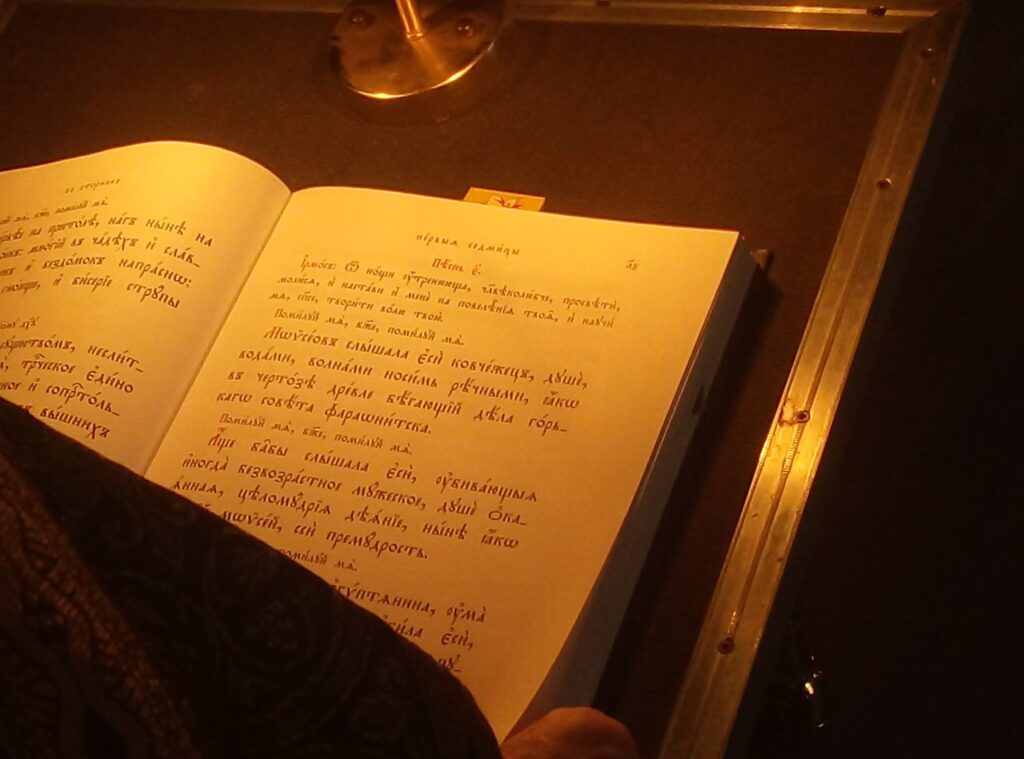 во вторникъ
мѧ̀, бж҃е, поми́лꙋй мѧ̀.
на престо́лѣ, на́гъ ны́нѣ на
мно́гїй въ ча́дѣхъ и҆ сла́в_
и҆ бездо́мокъ напра́снѡ:
и҆ би́серїе стрꙋ́пы
несли́т_
трⷪ҇ческое є҆ди́но
и҆ сопрⷭ҇то́ль_
вы́шнихъ
пе́рвыѧ седми́цы
Пѣ́снь є҃.
І҆рмо́съ: Ѿ но́щи оу҆́тренююща, чл҃вѣколю́бче, просвѣтѝ,
молю́сѧ, и҆ наста́ви и҆ менѐ на повелѣ̑нїѧ твоѧ̑, и҆ наꙋчи́
мѧ, сп҃се, твори́ти во́лю твою̀.
Поми́лꙋй мѧ̀, бж҃е, поми́лꙋй мѧ̀.
Мѡѷсе́овъ слы́шала є҆сѝ ковче́жецъ, дꙋшѐ,
вода́ми, волна́ми носи́мь рѣ́чными, ꙗ҆́кѡ
въ черто́зѣ дре́вле бѣ́гающїй дѣ́ла го́рь_
кагѡ совѣ́та фараѡни́тска.
Поми́лꙋй мѧ̀, бж҃е, поми́лꙋй мѧ̀.
А҆́ще ба̑бы слы́шала є҆сѝ, оу҆бива́ющыѧ
и҆ногда̀ безвозра́стное мꙋ́жеское, дꙋшѐ ѻ҆ка_
ѧ́ннаѧ, цѣломꙋ́дрїѧ дѣѧ́нїе, ны́нѣ ꙗ҆́кѡ
мѡѷсе́й, ссѝ премꙋ́дрость.
поми́лꙋй мѧ̀.
є҆гѵ́птѧнина, оу҆ма̀
є҆сѝ,